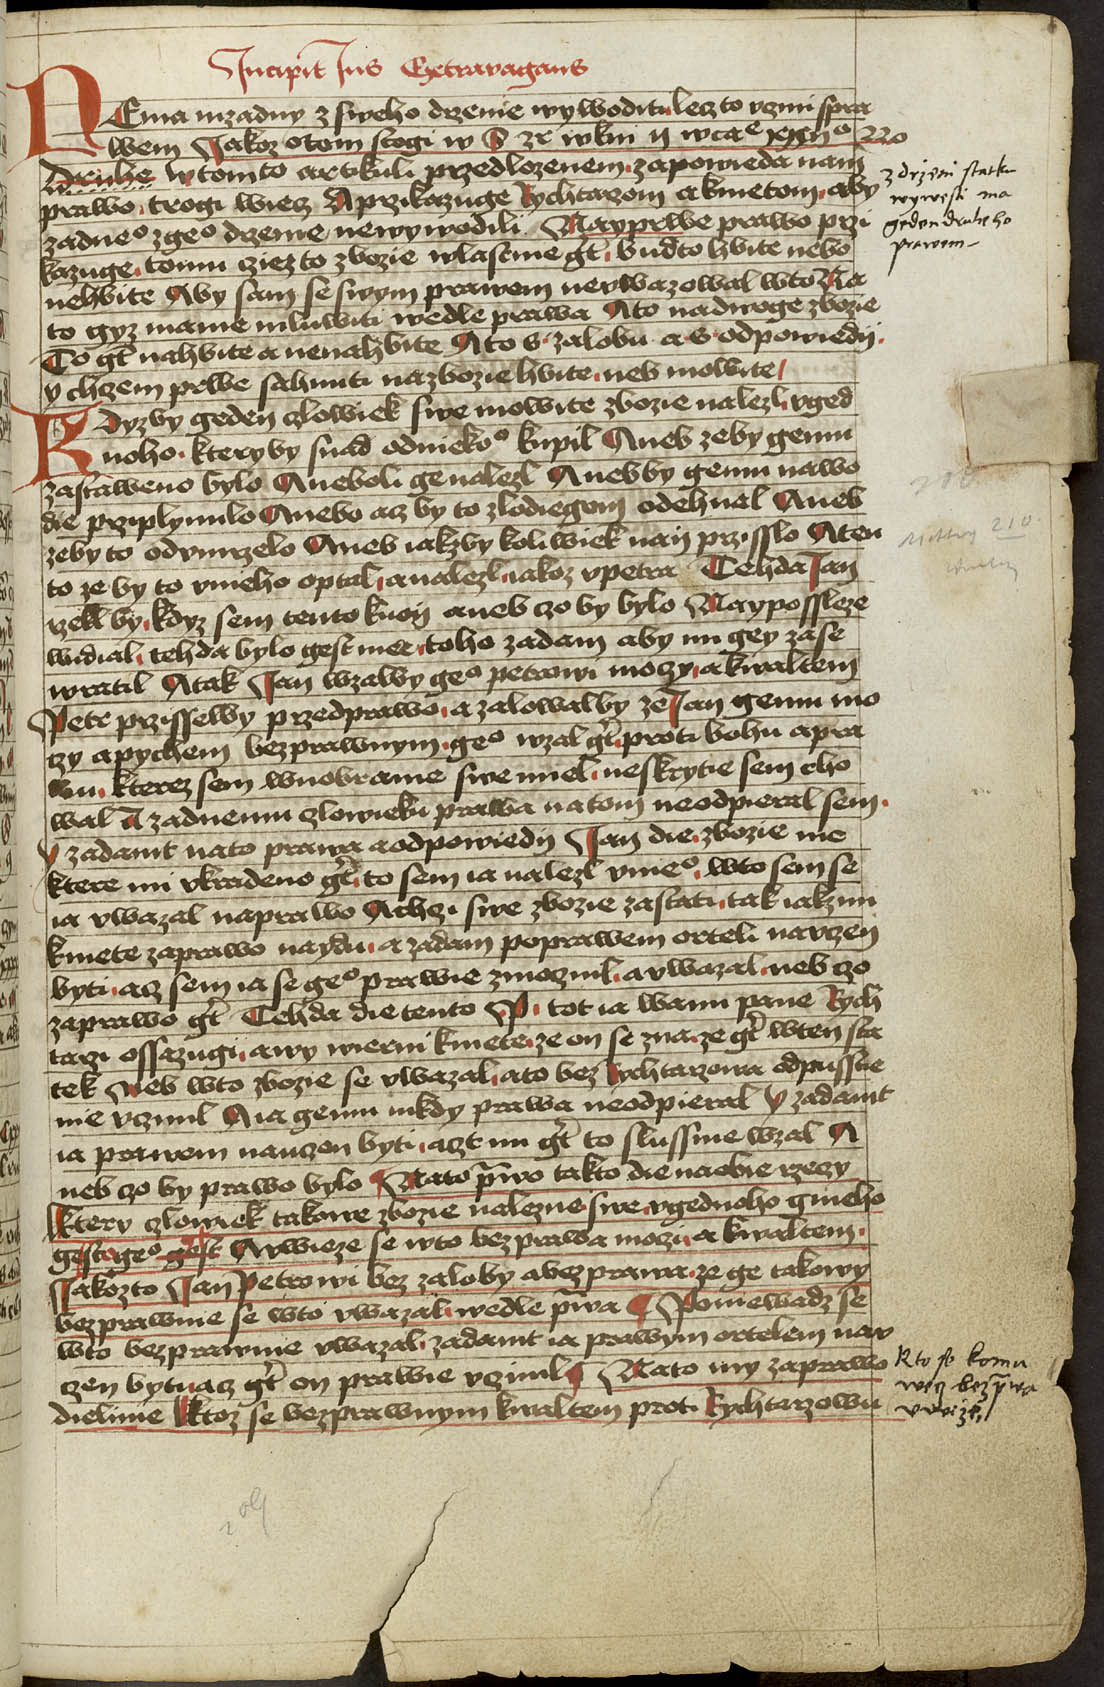 Incipit Ius Extravagans
NEma uzadny z sweho drzenie wywoditi lecz to uzini spra
wem Jakoz otom stogi w
druhe w tomto artikuli przedlozenem zapowieda nam
prawo trogi wiecz A przikazuge Rychtarzom a kmetom aby
zadneo zgeo drzenie newywodili Nayprwe prawo przi
kazuge tomu cziez to zbozie wlastnie gt budto hbite nebo
nehbite Aby sam se swym prawem neuwazowal wto Na
to gyz mame mluwiti wedle prawa Ato nadwoge zbozie
To gt nahbite a nenahbite A to s zalobu a s odpowiedij
y chczem prwe sahnuti nazbozie hbite neb mowite
Kdyzby geden czlowiek swe mowite zbozie nalezl uged
noho kteryby snad odniekoo kupil Aneb zeby gemu
zastaweno bylo Aneboli ge nalezl Anebby gemu nawo
die prziplynulo Anebo acz by to zlodiegom odehnal Aneb
zeby to odumrzelo Aneb iakzby koliwiek nan przisslo Aten
to ze by to umeho optal a nalezl iakoz upetra Tehda Jan
rzekl by kdyz sem tento kuon aneb czo by bylo Naypossleze
widial tehda bylo gest me toho zadam aby mi gey zase
wratil Atak Jan wzalby geo petrowi moczy a kwaltem
Petr przisselby przedprawo a zalowalby ze Jan gemu mo
czy a pychem bezprawnym geo wzal gt proti bohu a pra
wu kterez sem wuobranie swe miel neskrytie sem cho
wal A zadnemu czlowieku prawa natom neodpieral sem
y zadamt nato prawa a odpowiedij Jan die zbozie me
ktere mi ukradeno gt to sem ia nalezl umeo wto sem se
ia uwazal naprawo Achczi swe zbozie zastati tak iakz mi
kmete zaprawo naydu a zadam poprawem orteli nauczen
byti acz sem ia se geo prawie zmocznil a uwazal neb czo
zaprawo gt Tehda die tento P tot ia wami pane Rych
tarzi ossazugi a wy wierni kmete ze on se zna ze gt wten sta
tek Neb wto zbozie se uwazal a to bez Rychtarzowa odpusstie
nie uczinil A ia gemu nikdy prawa neodpieral y zadamt
ia prawem nauczen byti aczt mi gt to slussnie wzal A
neb czo by prawo bylo Nato pwo takto die naobie rzeczy
Ktery czlowiek takowe zbozie nalezne swe ugednoho gineho
gestogeo gest Auwieze se wto bez prawa moczi a kwaltem
Jakozto Jan Petrowi bez zaloby a bez prawa ze ge takowy
bezprawnie se wto uwazal wedle pwa Poniewadz se
wto bezprawnie uwazal zadamt ia prawym ortelem nau
czen bytu acz gt on prawie uczinil Nato my zaprawo
dielime Ktoz se bezprawnym kwaltem proti Rychtarzowu
z drzeni statku
wywesti ma
geden druheho
prawem
210
Kto se komu
wecz bez pwa
uwieze
209